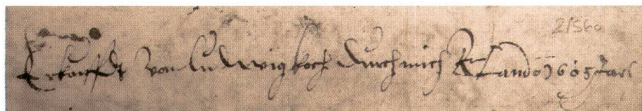 21560
Erkaufft von Ludwig koch durch mich 1605 Jar